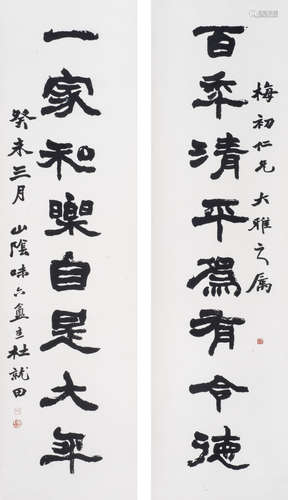 梅初仁兄大雅之属
百年清平為有令德
一家和樂自是大年
癸未三月山陰味六盦主杜就田